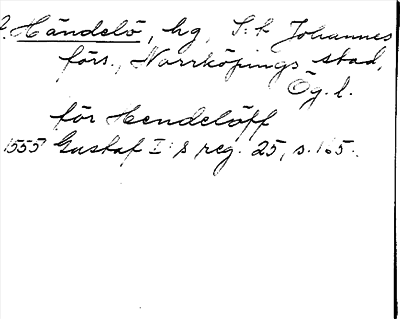 ? Händelö, hg, S:t Johannes
förs., Norrköpings stad,
Ög. l.
för Hendelöff
1555 Gustaf I:s reg. 25, s. 165.